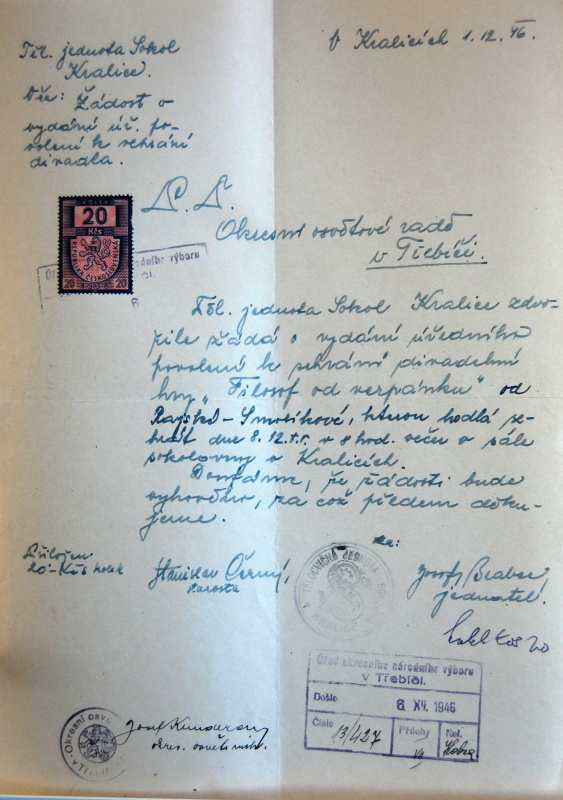 Těl. jednota Sokol
Kralice.
V Kralicích 1.12.46.
Věc: Žádost o
vydání úř. po-
volení k sehrání
divadla.
KOLEK
20
Kčs
REPUBLIKA ČESKOSLOVENSKÁ
20 20
národního výboru
Okresní osvětové radě
v Třebíči.
Těl. jednota Sokol Kralice zdvo-
řile žádá o vydání úředního
povolení k sehrání divadelní
hry „Filosof od verpánku" od
Rayské-Smolíkové, kterou hodlá se-
hrát dne 8.12.t.r. v 8 hod. večer v sále
sokolovny v Kralicích.
Doufáme, že žádosti bude
vyhověno, za což předem děku-
jeme.
za:
Přiložen
20-Kčs kolek
Stanislav Černý,
starosta
TĚLOCVIČNÁ JEDNOTA
KRALICE
Josef
jednatel.
Úřad okresního národního výboru
v Třebíči.
Došlo 6. XII. 1946
Číslo 13/427
Přílohy
Ref.
Okresní osvě
v Třebíči
Josef
okres. osvět.